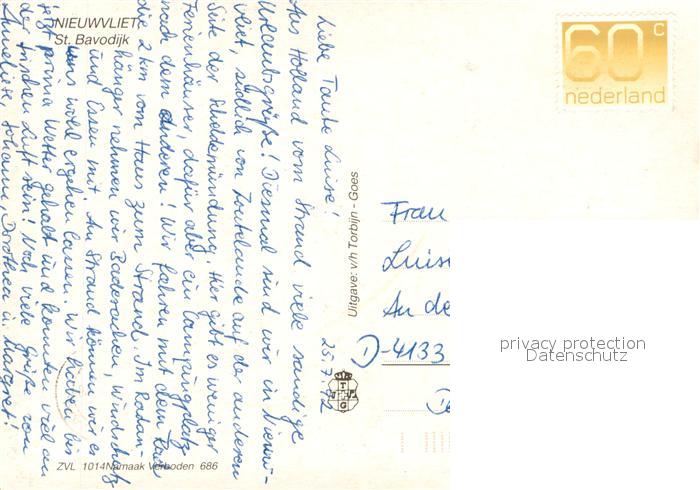 NIEUWVLIET,
St. Bavodijk
60 c
nederland
25.7.92
Liebe Tante Luise!
Aus Holland vom Strand viele sandige
Urlaubsgrüße! Diesmal sind wir in Nieuw-
vliet, südlich von Zoutelande auf der anderen
Seite der Scheldemündung. Hier gibt es weniger
Ferienhäuser dafür aber ein Campingplatz
nach dem anderen! Wir fahren mit dem Rad
die 2 km vom Haus zum Strand. Im Radan-
hänger nehmen wir Badesachen, Windschutz
und Essen mit. Am Strand können wir es
uns wohl ergehen lassen. Wir haben bis
jetzt prima Wetter gehabt und konnten viel an
der frischen Luft sein! Noch viele Grüße von
Anneliese, Johann, Dorothea u. Margret!
Uitgave: v/h Torbijn - Goes
Frau
Luis
An de
D-4133
TG
privacy protection
Datenschutz
ZVL 1014 Namaak Verboden 686